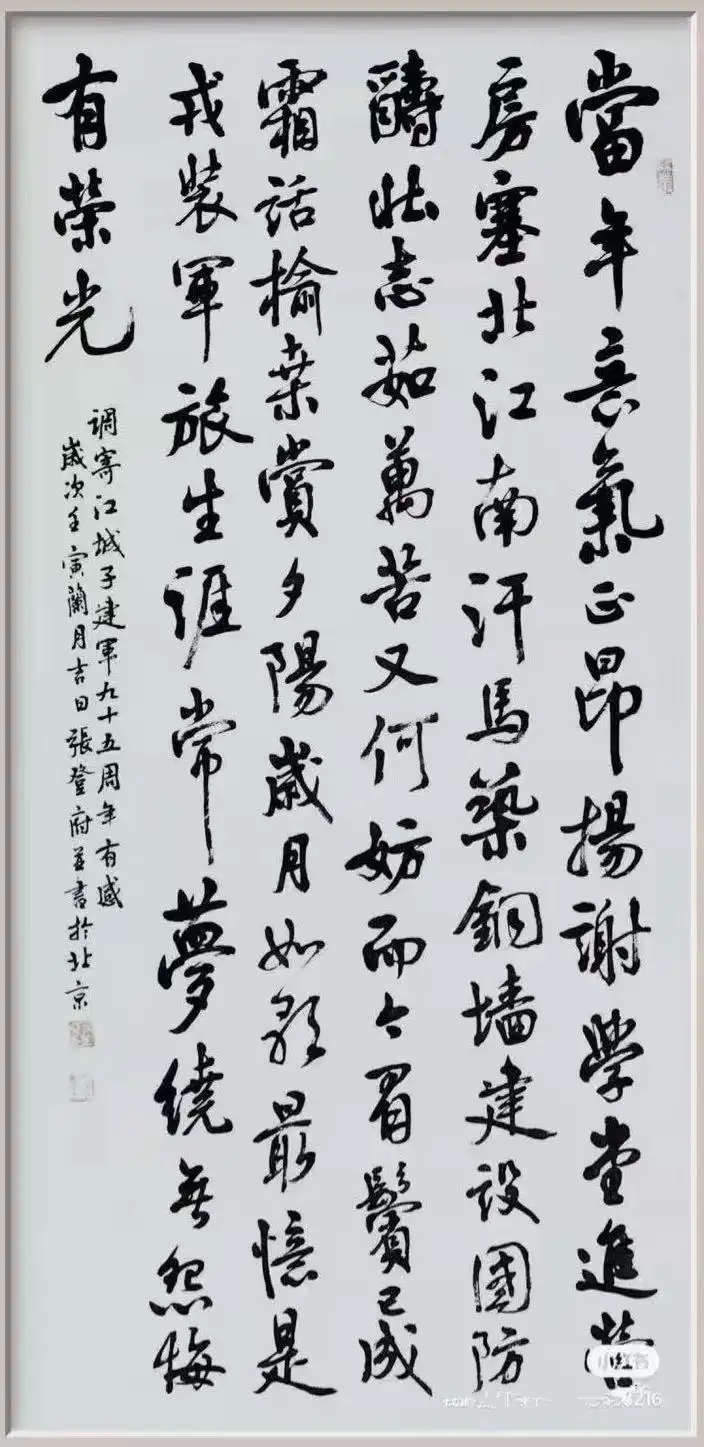 當年意氣正昂揚謝學堂進營
房塞北江南汗馬築銅墻建設國防
醻壯志茹萬苦又何妨而今眉鬢已成
霜話榆桑賞夕陽歲月如歌最憶是
戎裝軍旅生涯常夢繞無怨悔
有榮光
调寄江城子建軍九十五周年有感
歲次壬寅蘭月吉日張登府並書於北京
小红书